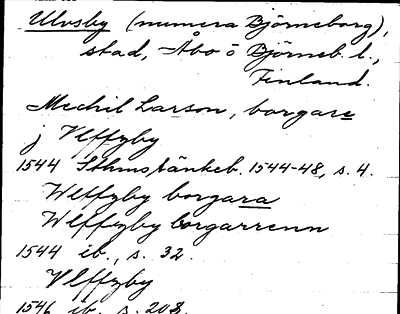 Ulvsby (numera Björneborg),
stad, Åbo o Björneb. l.,
Finland.
Mechil Larson, borgare
j Vlffzby
1544 Sthms tänkeb. 1544-48, s. 4.
Wlffzby borgara
Wlffzby borgarrenn
1544 ib., s. 32.
Vlffzby
1546 ib. s. 208.